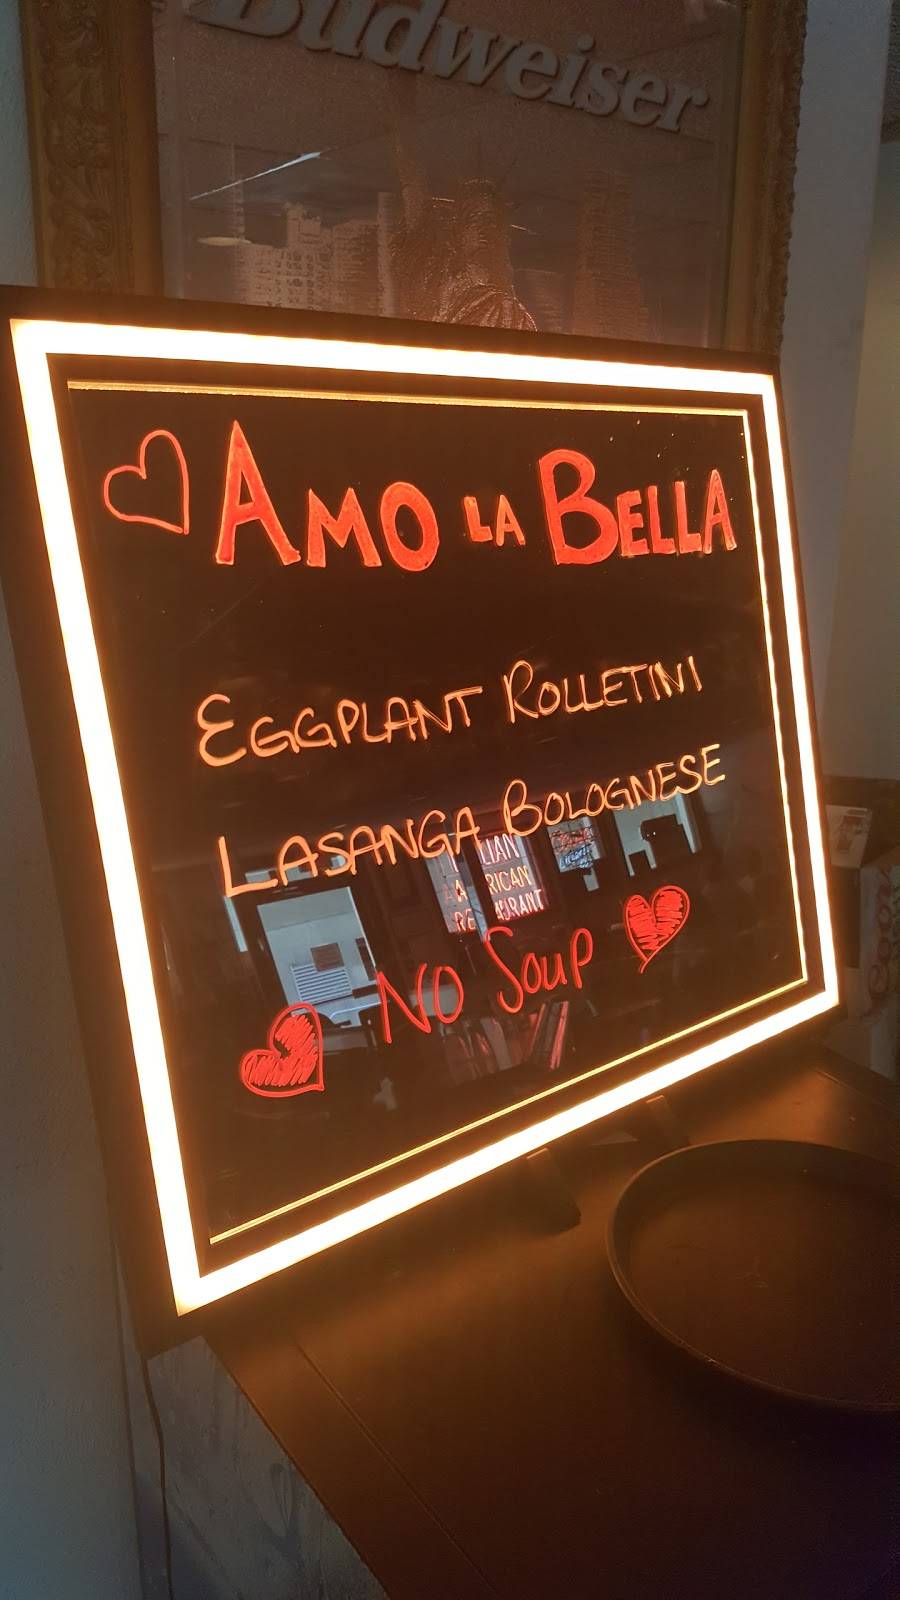 Budweiser
AMO LA BELLA
EGGPLANT ROLLETINI
LASANGA BOLOGNESE
NO SOUP